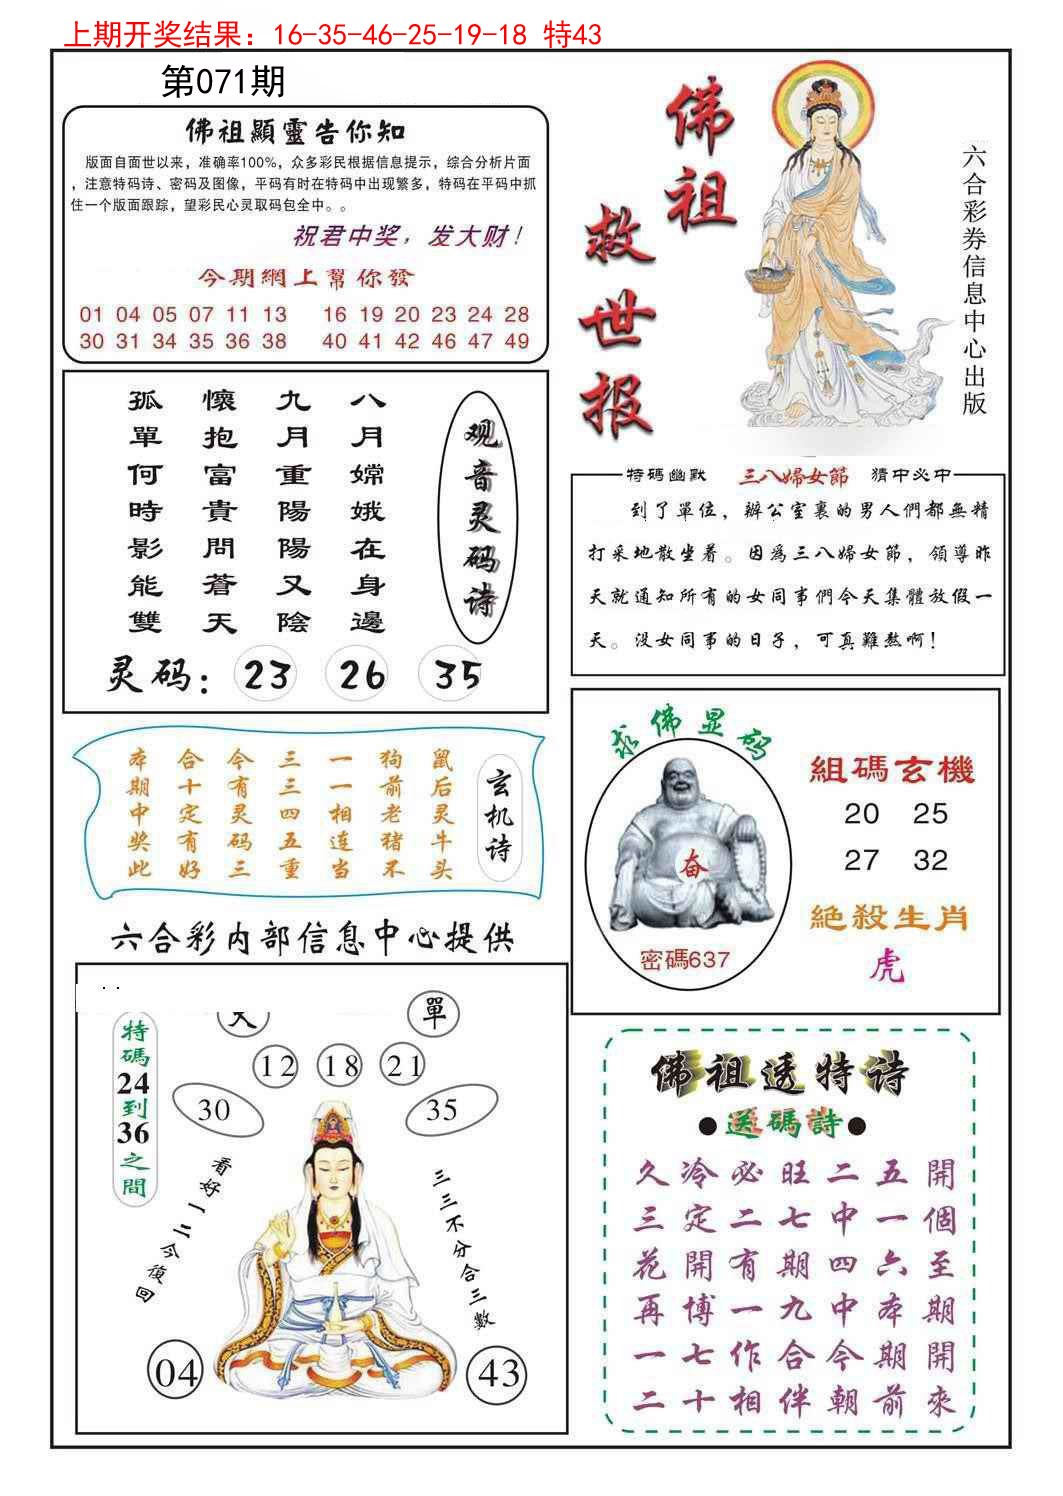 上期开奖结果：16-35-46-25-19-18 特43
第071期
佛祖顯靈告你知
版面自面世以来，准确率100%，众多彩民根据信息提示，综合分析片面
，注意特码诗、密码及图像，平码有时在特码中出现繁多，特码在平码中抓
住一个版面跟踪，望彩民心灵取码包全中。。
祝君中奖，发大财！
今期網上幫你發
01 04 05 07 11 13 16 19 20 23 24 28
30 31 34 35 36 38 40 41 42 46 47 49
佛祖
救世报
六合彩券信息中心出版
观音灵码诗
八月嫦娥在身邊
九月重陽陽又陰
懷抱富貴問蒼天
孤單何時影能雙
灵码：23 26 35
特碼幽默 三八婦女節 猜中必中
到了單位，辦公室裏的男人們都無精
打采地散坐着。因爲三八婦女節，領導昨
天就通知所有的女同事們今天集體放假一
天。沒女同事的日子，可真難熬啊！
玄机诗
鼠后灵牛头
狗前老猪不
一一相连当
三三四五重
今有灵码三
合十定有好
本期中奖此
求佛显码
奋
密碼637
組碼玄機
20 25
27 32
絶殺生肖
虎
六合彩内部信息中心提供
特碼24到36之間
單
12 18 21
30 35
看好一二今復回
三三不分合三數
04 43
佛祖透特诗
●送碼詩●
久冷必旺二五開
三定二七中一個
花開有期四六至
再博一九中本期
一七作合今期開
二十相伴朝前來